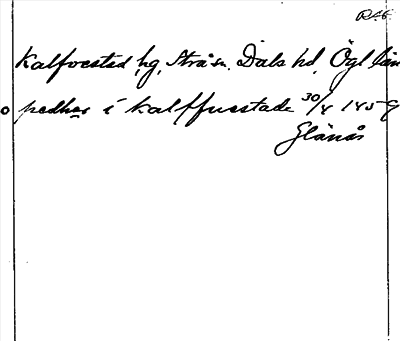 R46.
Kalfvestad, hg, Strå sn. Dala hd, Ögl län
pedhar i kalffuestade 30/4 1459
Glänås